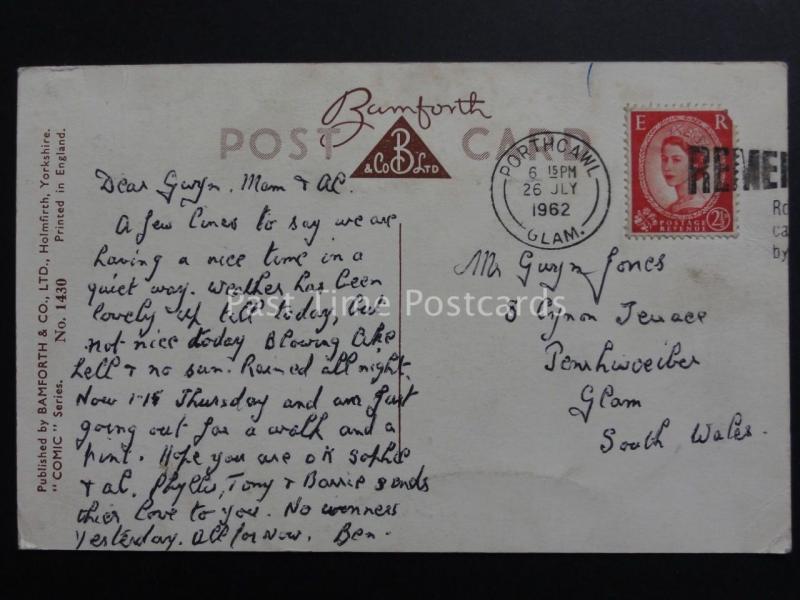 Published by BAMFORTH & CO., LTD., Holmfirth, Yorkshire.
"COMIC" Series. No. 1430 Printed in England.
Bamforth
POST CARD
B
& Co LTD
PORTHCAWL
6 15 PM
26 JLY
1962
GLAM.
E R
POSTAGE
REVENUE
2½
REMEM
Ro
ca
by
Dear Gwyn. Mam & Al.
A few lines to say we are
having a nice time in a
quiet way. Weather has been
lovely up till today, but
not nice today Blowing like
hell & no sun. Rained all night.
Now 1-15 Thursday and am just
going out for a walk and a
pint. Hope you are OK Sophie
& al. Phyllis, Tony & Barrie sends
thier love to you. No winners
yesterday. All for now. Ben.
Mr Gwyn Jones
5 Cynon Terrace
Penrhiwceiber
Glam
South Wales.
Past Time Postcards